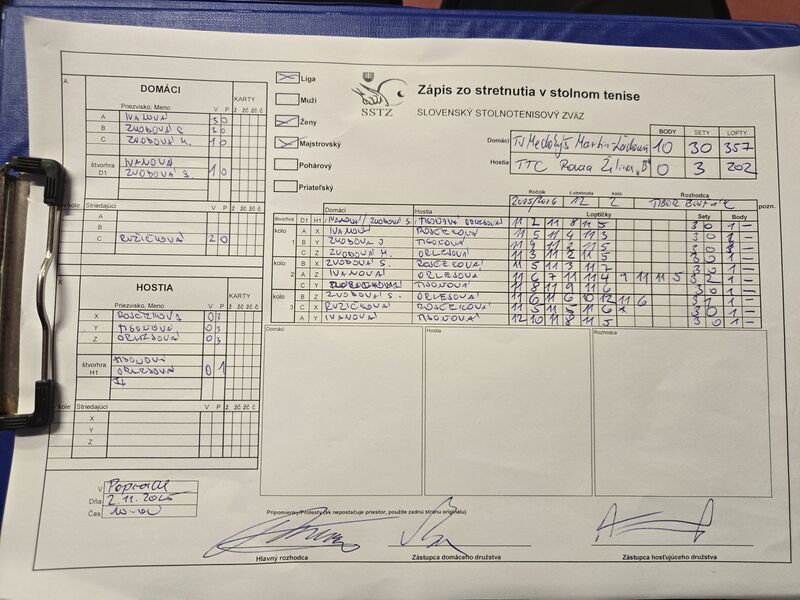 Zápis zo stretnutia v stolnom tenise
SLOVENSKÝ STOLNOTENISOVÝ ZVÄZ
SSTZ
Liga
Muži
Ženy
Majstrovský
Pohárový
Priateľský
Domáci
Hostia TTC Žilina "B"
BODY SETY LOPTY
10 30 357
0 3 202
Ročník č.stretnutia kolo Rozhodca
2025/2026 12 2 TIBOR
pozn.
A
DOMÁCI
Priezvisko, Meno V P KARTY
ž žč žč č
A IVANOVÁ 3 0
B ZVODOVÁ S. 3 0
C ZVODOVÁ M. 1 0
štvorhra D1
IVANOVÁ
ZVODOVÁ S. 1 0
kolo Striedajúci V P ž žč žč č
A
B
C RUŽIČKOVÁ 2 0
X
HOSTIA
Priezvisko, Meno V P KARTY
ž žč žč č
X 0 3
Y TISONOVÁ 0 3
Z ORLEJOVÁ 0 3
štvorhra H1
TISONOVÁ
ORLEJOVÁ 0 1
kolo Striedajúci V P ž žč žč č
X
Y
Z
Domáci Hostia Loptičky Sety Body
štvorhra D1 H1 IVANOVÁ / ZVODOVÁ S. TISONOVÁ ORLEJOVÁ 11 2 11 8 11 5 3 0 1 –
kolo 1 A X IVANOVÁ 11 5 11 4 11 3 3 0 1 –
B Y ZVODOVÁ S TISONOVÁ 11 4 11 2 11 5 3 0 1 –
C Z ZVODOVÁ M. ORLEJOVÁ 11 3 11 2 11 5 3 0 1 –
kolo 2 B X ZVODOVÁ S. 11 5 11 3 11 7 3 0 1 –
A Z IVANOVÁ ORLEJOVÁ 11 6 7 11 11 4 9 11 11 5 3 2 1 –
C Y TISONOVÁ 11 8 11 9 11 6 3 0 1 –
kolo 3 B Z ZVODOVÁ S. ORLEJOVÁ 11 6 11 6 10 12 11 6 3 1 1 –
C X RUŽIČKOVÁ 11 5 11 5 11 3 0 1 –
A Y IVANOVÁ TISONOVÁ 12 10 11 8 11 5 3 0 1 –
Domáci Hostia Rozhodca
V Poprade
Dňa 2.11.2025
Čas 10:00
Pripomienky/Protesty (ak nepostačuje priestor, použite zadnú stranu originálu)
Hlavný rozhodca Zástupca domáceho družstva Zástupca hosťujúceho družstva